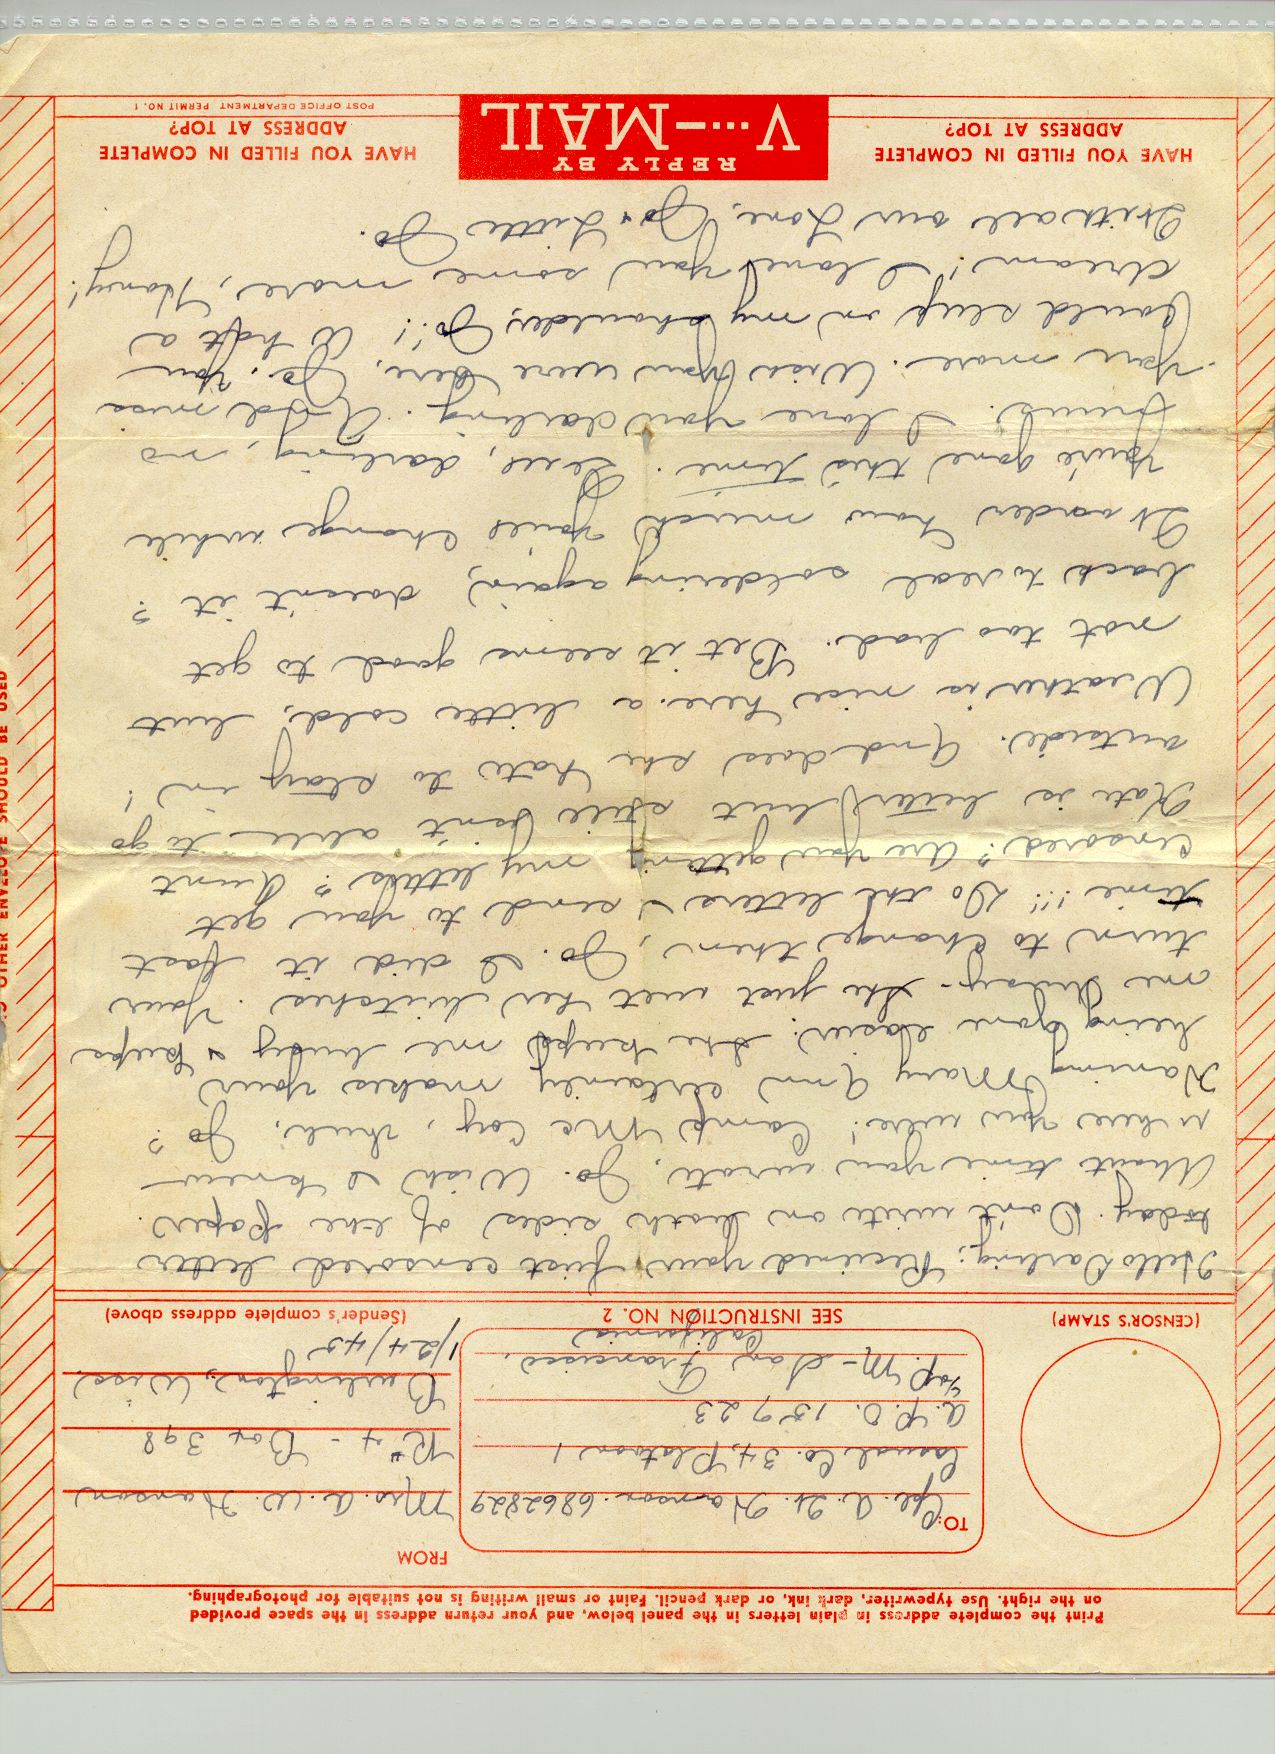 Print the complete address in plain letters in the panel below, and your return address in the space provided
on the right. Use typewriter, dark ink, or dark pencil. Faint or small writing is not suitable for photographing.
TO:
Cpl. A. W. Hanson. 6862829
Casual Co. 34, Platoon 1
A.P.O. 15923
℅ P.M - San Francisco,
California
FROM
Mrs. A. W. Hanson
R#4 - Box 398
Burlington, Wisc.
1/24/45
(CENSOR'S STAMP)
SEE INSTRUCTION NO. 2
(Sender's complete address above)
Hello Darling: Received your first censored letter
today. Don't write on both sides of the paper.
What time you wrote, Jo. Wish I knew
where you were! Camp Mc Coy, huh, Jo?
Having Mary Ann certainly makes your
being gone easier. She keeps me busy & keeps
me - She just wet her britches. Your
turn to change them, Jo. I did it last
time!!! Do the letters I send to you get
censored? Are you getting my letters? Aunt
Kate is better but still isn't able to go
outside. And does she hate to stay in!
Weather is nice here. a little cold, but
not too bad. Bet it seems good to get
back to real soldering again, doesn't it?
Wonder how much you'll change while
you're gone this time. Less, darling, no
I love you darling. And miss
you more. Wish you were here, Jo. You
could sleep on my shoulder, Jo!! What a
dream! I love you some more, Honey!
With all our Love, Jo & Little Jo.
HAVE YOU FILLED IN COMPLETE
ADDRESS AT TOP?
REPLY BY
V···—MAIL
HAVE YOU FILLED IN COMPLETE
ADDRESS AT TOP?
POST OFFICE DEPARTMENT PERMIT NO. 1
OTHER ENVELOPE SHOULD BE USED